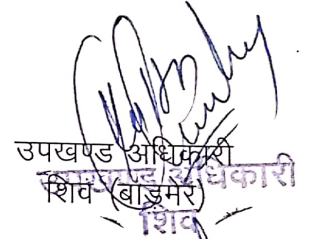 उपखण्ड अधिकारी
शिव (बाड़मेर)
उपखण्ड अधिकारी
शिव